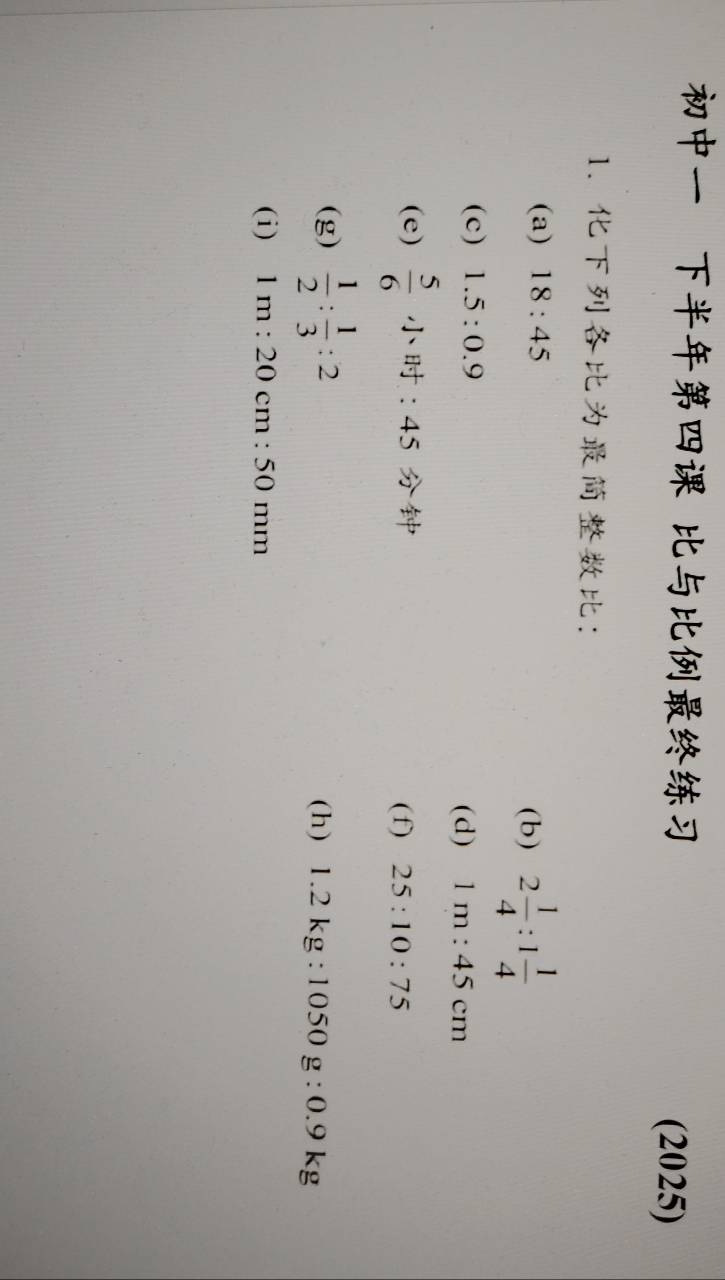 初中一 下半年第四课 比与比例最终练习 (2025)
1. 化下列各比为最简整数比：
(a) 18 : 45 (b) 2 1/4 : 1 1/4
(c) 1.5 : 0.9 (d) 1 m : 45 cm
(e) 5/6 小时 : 45 分钟 (f) 25 : 10 : 75
(g) 1/2 : 1/3 : 2 (h) 1.2 kg : 1050 g : 0.9 kg
(i) 1 m : 20 cm : 50 mm